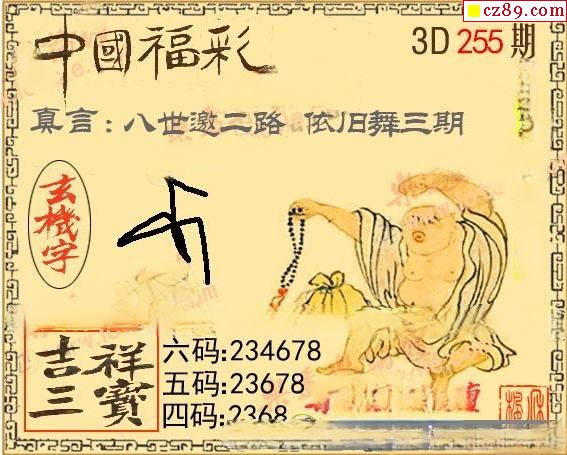 cz89.com
中國福彩
3D 255 期
真言：八世邀二路 依旧舞三期
玄機字
吉祥三寶
六码:234678
五码:23678
四码:2368